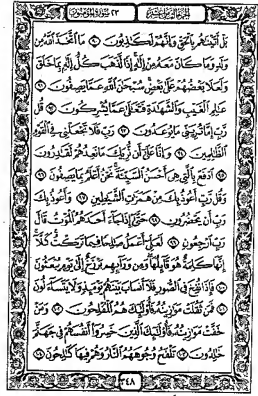 الجزء الثامن عشر ٢٣ سورة المؤمنون
بَلْ أَتَيْنَٰهُم بِٱلْحَقِّ وَإِنَّهُمْ لَكَٰذِبُونَ ٩٠ مَا ٱتَّخَذَ ٱللَّهُ مِن
وَلَدٍ وَمَا كَانَ مَعَهُۥ مِنْ إِلَٰهٍ إِذًا لَّذَهَبَ كُلُّ إِلَٰهٍۭ بِمَا خَلَقَ
وَلَعَلَا بَعْضُهُمْ عَلَىٰ بَعْضٍ سُبْحَٰنَ ٱللَّهِ عَمَّا يَصِفُونَ ٩١
عَٰلِمِ ٱلْغَيْبِ وَٱلشَّهَٰدَةِ فَتَعَٰلَىٰ عَمَّا يُشْرِكُونَ ٩٢ قُل
رَّبِّ إِمَّا تُرِيَنِّي مَا يُوعَدُونَ ٩٣ رَبِّ فَلَا تَجْعَلْنِي فِي ٱلْقَوْمِ
ٱلظَّٰلِمِينَ ٩٤ وَإِنَّا عَلَىٰٓ أَن نُّرِيَكَ مَا نَعِدُهُمْ لَقَٰدِرُونَ
٩٥ ٱدْفَعْ بِٱلَّتِي هِيَ أَحْسَنُ ٱلسَّيِّئَةَ نَحْنُ أَعْلَمُ بِمَا يَصِفُونَ ٩٦
وَقُل رَّبِّ أَعُوذُ بِكَ مِنْ هَمَزَٰتِ ٱلشَّيَٰطِينِ ٩٧ وَأَعُوذُ بِكَ
رَبِّ أَن يَحْضُرُونِ ٩٨ حَتَّىٰٓ إِذَا جَآءَ أَحَدَهُمُ ٱلْمَوْتُ قَالَ
رَبِّ ٱرْجِعُونِ ٩٩ لَعَلِّيٓ أَعْمَلُ صَٰلِحًا فِيمَا تَرَكْتُ كَلَّآ
إِنَّهَا كَلِمَةٌ هُوَ قَآئِلُهَا وَمِن وَرَآئِهِم بَرْزَخٌ إِلَىٰ يَوْمِ يُبْعَثُونَ
١٠٠ فَإِذَا نُفِخَ فِي ٱلصُّورِ فَلَآ أَنسَابَ بَيْنَهُمْ يَوْمَئِذٍ وَلَا يَتَسَآءَلُونَ
١٠١ فَمَن ثَقُلَتْ مَوَٰزِينُهُۥ فَأُو۟لَٰٓئِكَ هُمُ ٱلْمُفْلِحُونَ ١٠٢ وَمَنْ
خَفَّتْ مَوَٰزِينُهُۥ فَأُو۟لَٰٓئِكَ ٱلَّذِينَ خَسِرُوٓا۟ أَنفُسَهُمْ فِي جَهَنَّمَ
خَٰلِدُونَ ١٠٣ تَلْفَحُ وُجُوهَهُمُ ٱلنَّارُ وَهُمْ فِيهَا كَٰلِحُونَ ١٠٤
٣٤٨